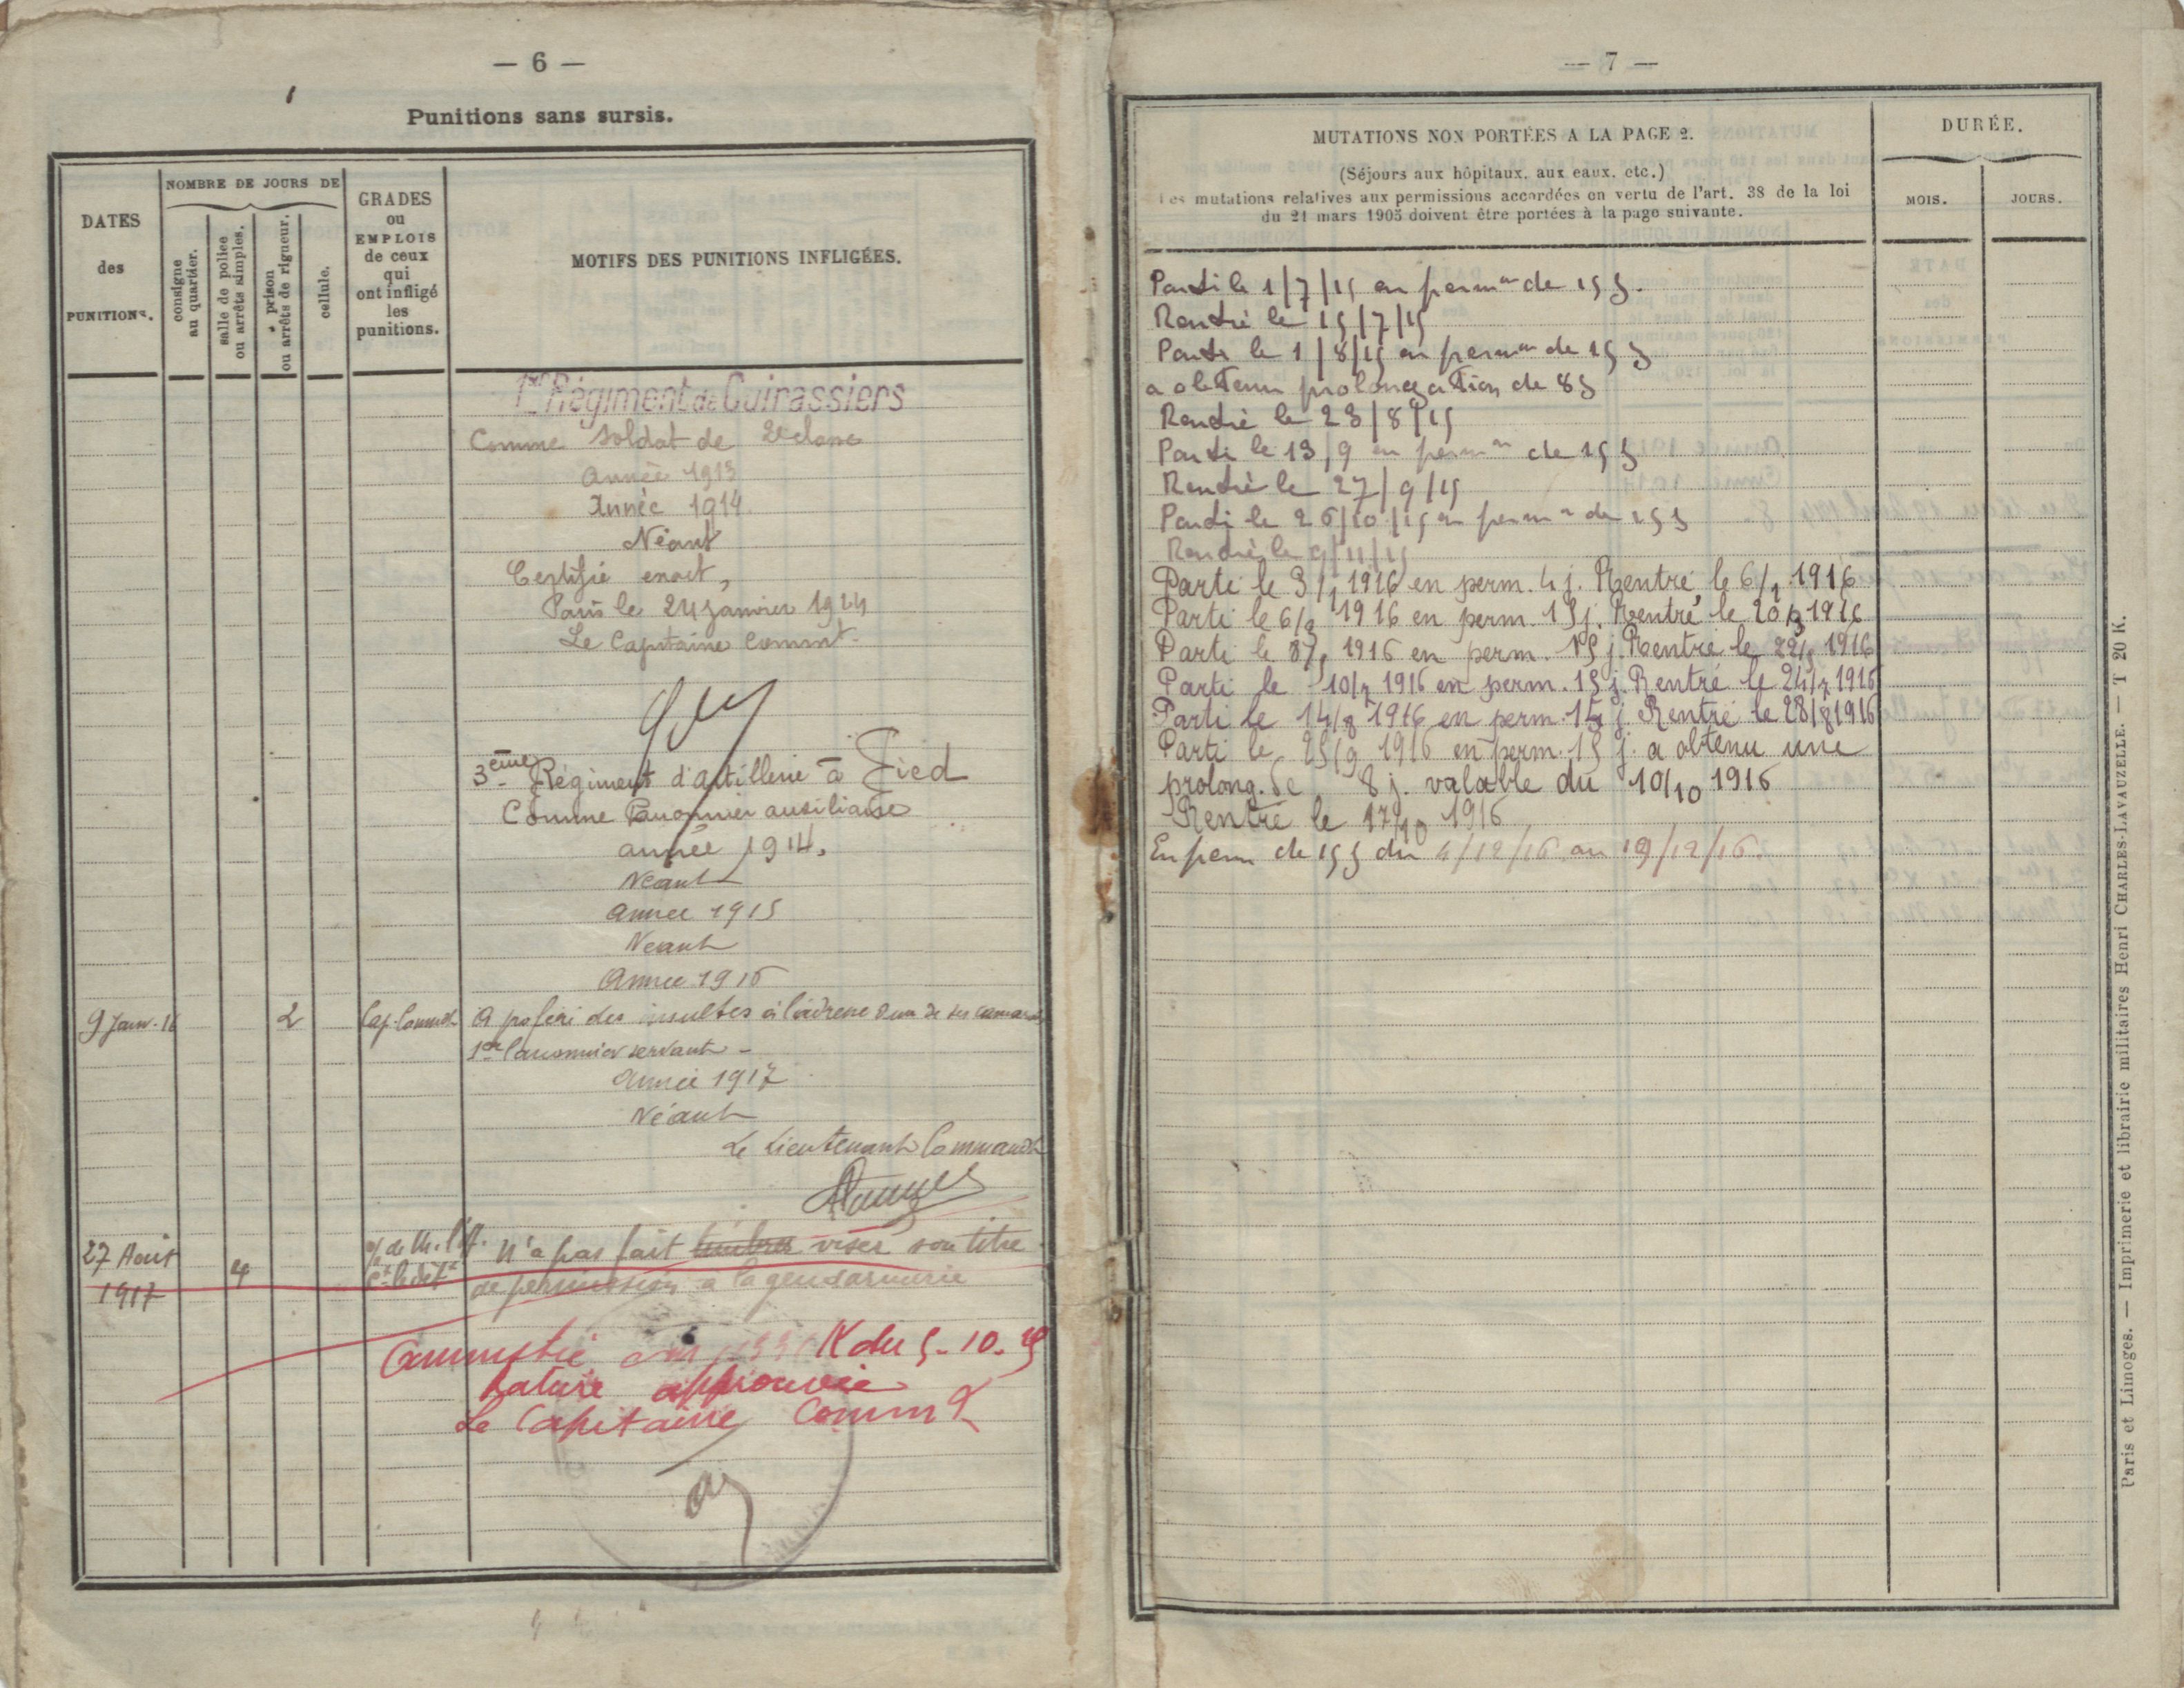 — 6 —
Punitions sans sursis.
DATES
des
PUNITIONS.
NOMBRE DE JOURS DE
consigne
au quartier.
salle de police
ou arrêts simples.
prison
ou arrêts de rigueur.
cellule.
GRADES
ou
EMPLOIS
de ceux
qui
ont infligé
les
punitions.
MOTIFS DES PUNITIONS INFLIGÉES.
1er Régiment de Cuirassiers
Comme soldat de 2e classe
Année 1913
Année 1914
Néant
Certifié exact,
Paris le 24 Janvier 1914
Le Capitaine Commt.
3ème Régiment d'artillerie à Pied
Comme Canonnier auxiliaire
année 1914.
Néant
Année 1915
Néant
Année 1916
9 Janv. 16 2 Cap. Commdt A proféré des insultes à l'adresse d'un de ses camarades
1er Canonnier servant -
Année 1917
Néant
Le Lieutenant Commandt
27 Août
1917
4
N'a pas fait viser son titre
de permission à la gendarmerie
Amnistié K du 5-10-19
Rature approuvée
Le Capitaine Commdt
— 7 —
MUTATIONS NON PORTÉES A LA PAGE 2.
(Séjours aux hôpitaux, aux eaux, etc.)
Les mutations relatives aux permissions accordées en vertu de l'art. 38 de la loi
du 21 mars 1905 doivent être portées à la page suivante.
DURÉE.
MOIS.
JOURS.
Parti le 1/7/15 en permon de 15 j.
Rentré le 15/7/15
Parti le 1/8/15 en permon de 15 j
a obtenu prolongation de 8 j
Rentré le 23/8/15
Parti le 13/9 en permon de 15 j
Rentré le 27/9/15
Parti le 26/10/15 en permon de 15 j
Rentré le 9/11/15
Parti le 3/1 1916 en perm. 4 j. Rentré le 6/1 1916
Parti le 6/3 1916 en perm. 15 j. Rentré le 20/3 1916
Parti le 8/5 1916 en perm. 15 j. Rentré le 22/5 1916
Parti le 10/7 1916 en perm. 15 j. Rentré le 24/7 1916
Parti le 14/8 1916 en perm. 15 j. Rentré le 28/8 1916
Parti le 25/9 1916 en perm. 15 j. a obtenu une
prolong. de 8 j. valable du 10/10 1916
Rentré le 17/10 1916
En perm de 15 j du 4/12/16 au 19/12/16.
Paris et Limoges. — Imprimerie et librairie militaires Henri CHARLES-LAVAUZELLE. — T 20 K.